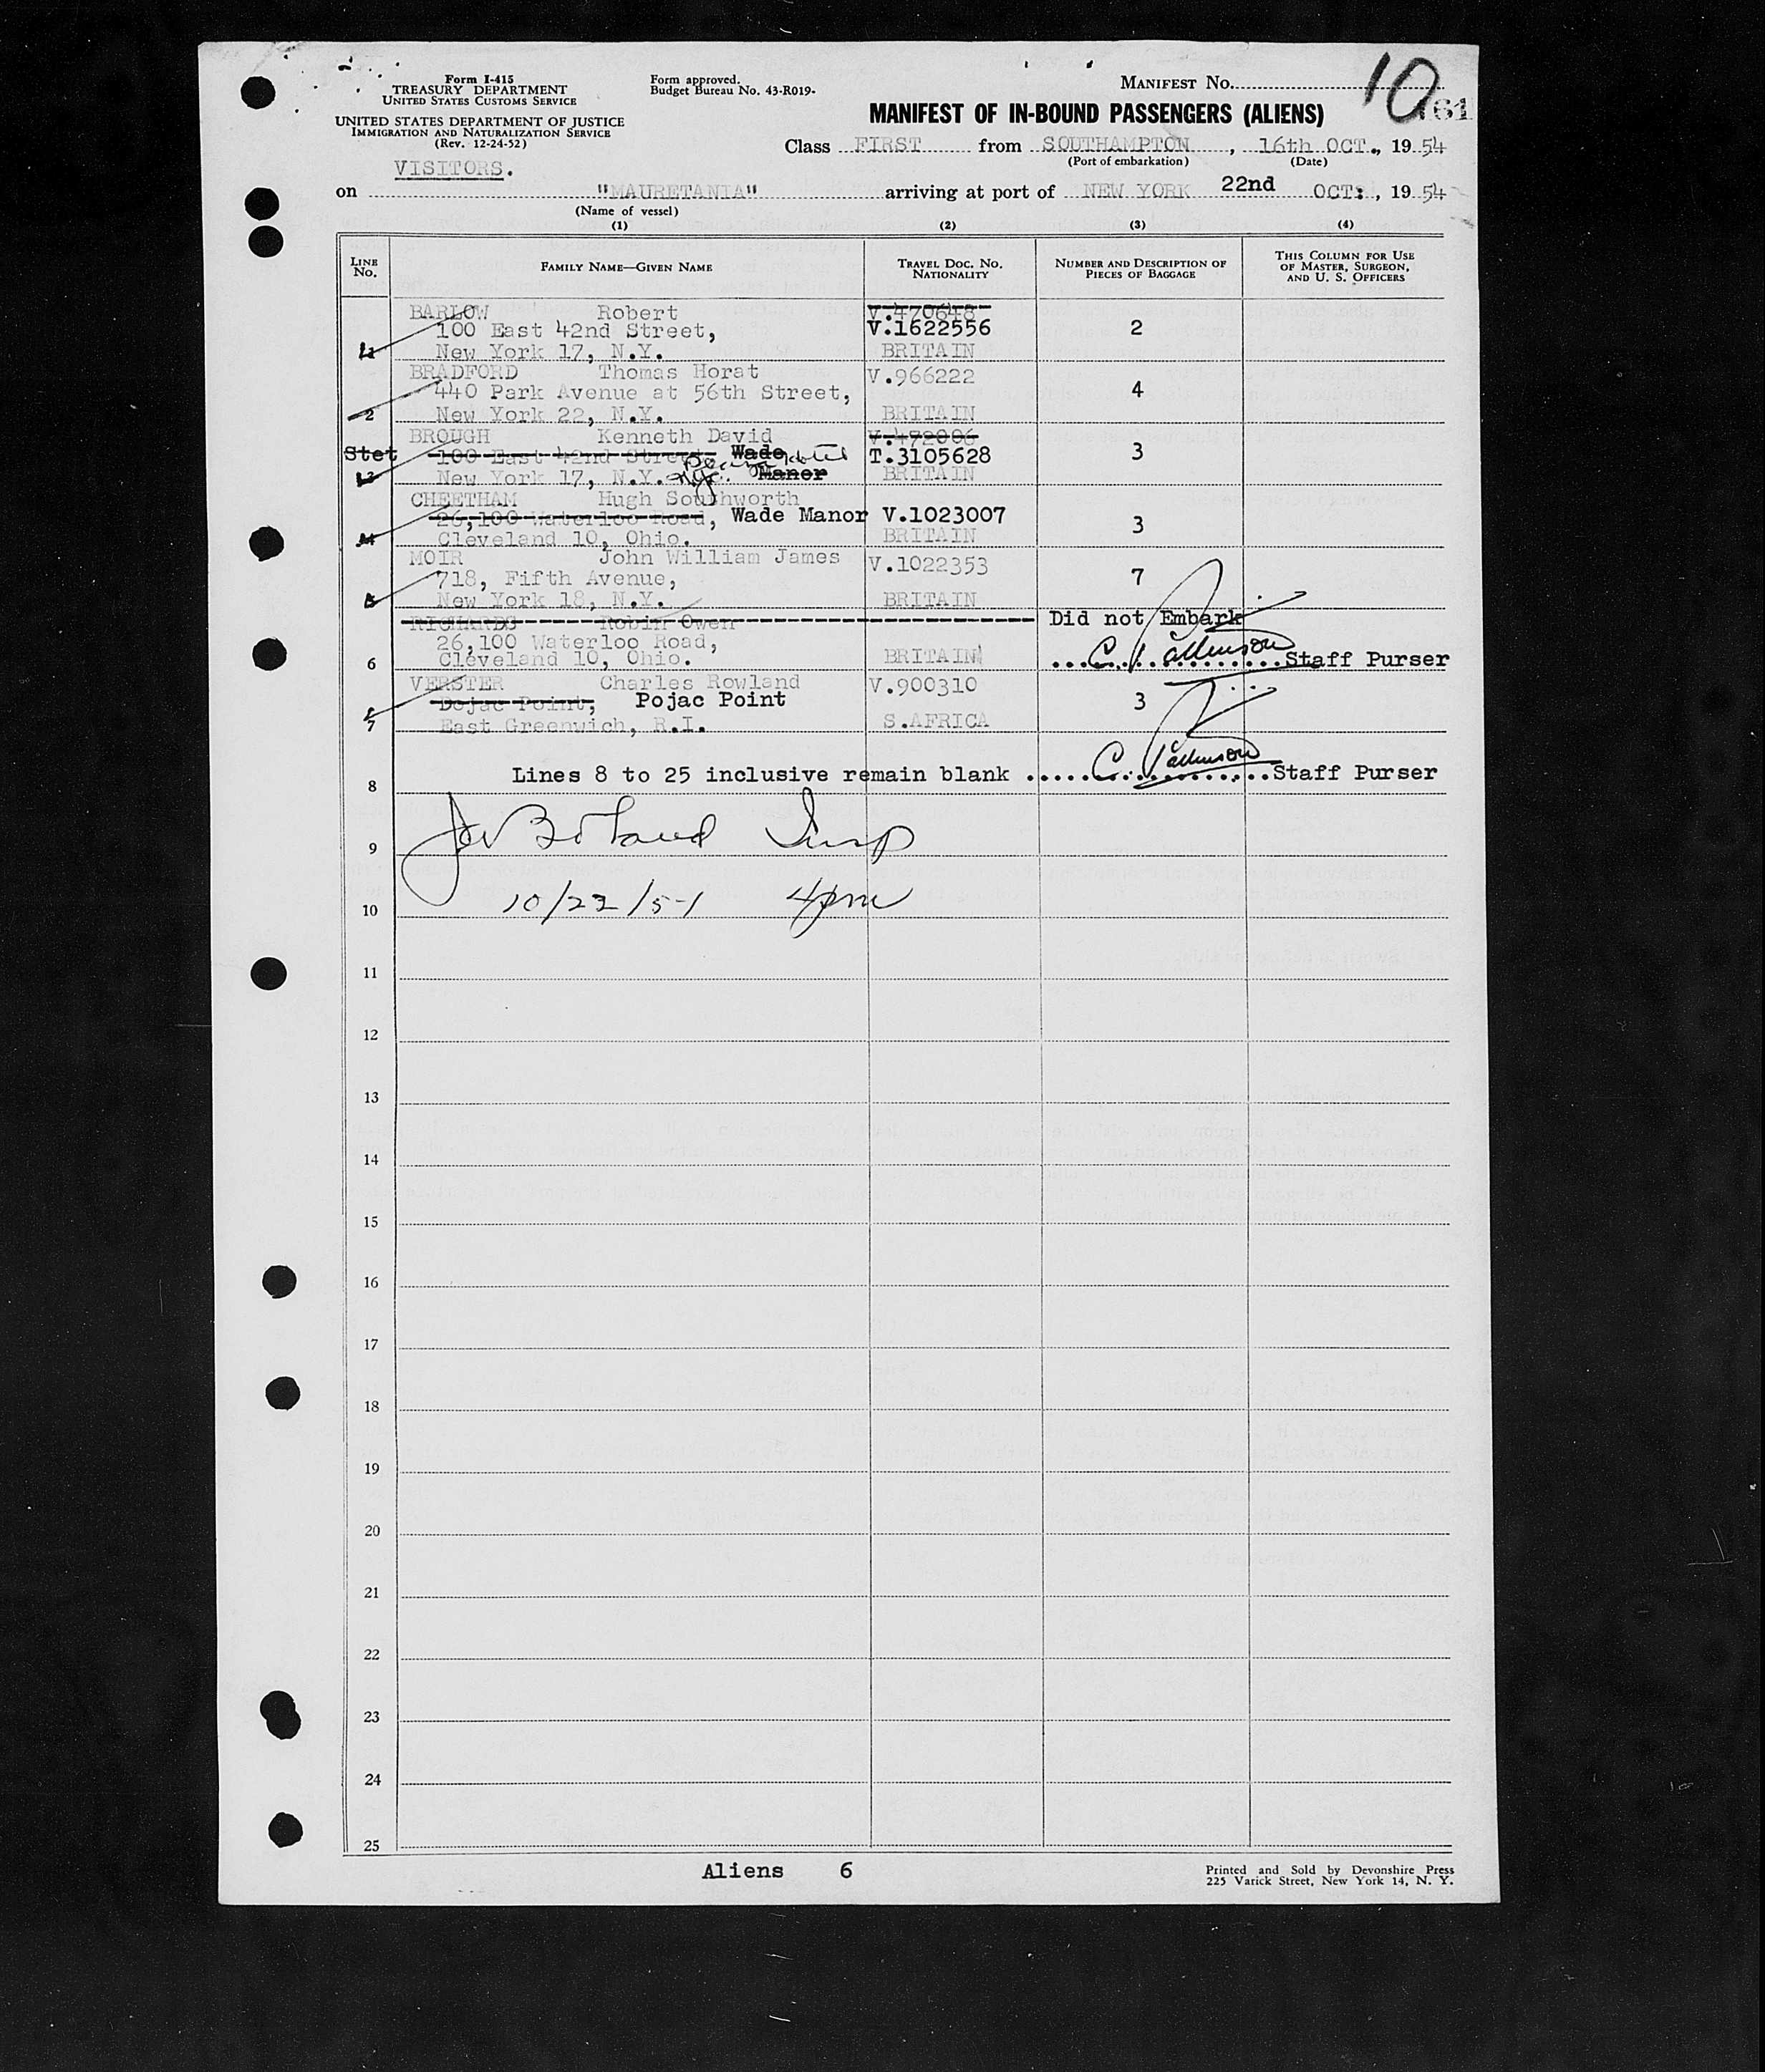 Form I-415
TREASURY DEPARTMENT
UNITED STATES CUSTOMS SERVICE
UNITED STATES DEPARTMENT OF JUSTICE
IMMIGRATION AND NATURALIZATION SERVICE
(Rev. 12-24-52)
Form approved.
Budget Bureau No. 43-R019-
MANIFEST No. 10
161
MANIFEST OF IN-BOUND PASSENGERS (ALIENS)
Class FIRST from SOUTHAMPTON, 16th OCT., 1954
(Port of embarkation) (Date)
VISITORS.
on "MAURETANIA" arriving at port of NEW YORK 22nd OCT:, 1954
(Name of vessel)
(1) (2) (3) (4)
LINE No. FAMILY NAME—GIVEN NAME TRAVEL DOC. No. NATIONALITY NUMBER AND DESCRIPTION OF PIECES OF BAGGAGE THIS COLUMN FOR USE OF MASTER, SURGEON, AND U. S. OFFICERS
BARLOW Robert V.470648
100 East 42nd Street, V.1622556 2
1 New York 17, N.Y. BRITAIN
BRADFORD Thomas Horat V.966222
440 Park Avenue at 56th Street, 4
2 New York 22, N.Y. BRITAIN
BROUGH Kenneth David V.472006
Stet 100 East 42nd Street, Wade T.3105628 3
3 New York 17, N.Y. Manor BRITAIN
CHEETHAM Hugh Southworth
26,100 Waterloo Road, Wade Manor V.1023007 3
4 Cleveland 10, Ohio. BRITAIN
MOIR John William James V.1022353
718, Fifth Avenue, 7
5 New York 18, N.Y. BRITAIN
RICHARDS Robin Owen Did not Embark
26,100 Waterloo Road,
6 Cleveland 10, Ohio. BRITAIN C. Patkinson Staff Purser
VERSTER Charles Rowland V.900310
Dojac Point, Pojac Point 3
7 East Greenwich, R.I. S.AFRICA
8 Lines 8 to 25 inclusive remain blank C. Patkinson Staff Purser
9 Insp
10 10/22/54 4pm
11
12
13
14
15
16
17
18
19
20
21
22
23
24
25
Aliens 6
Printed and Sold by Devonshire Press
225 Varick Street, New York 14, N. Y.